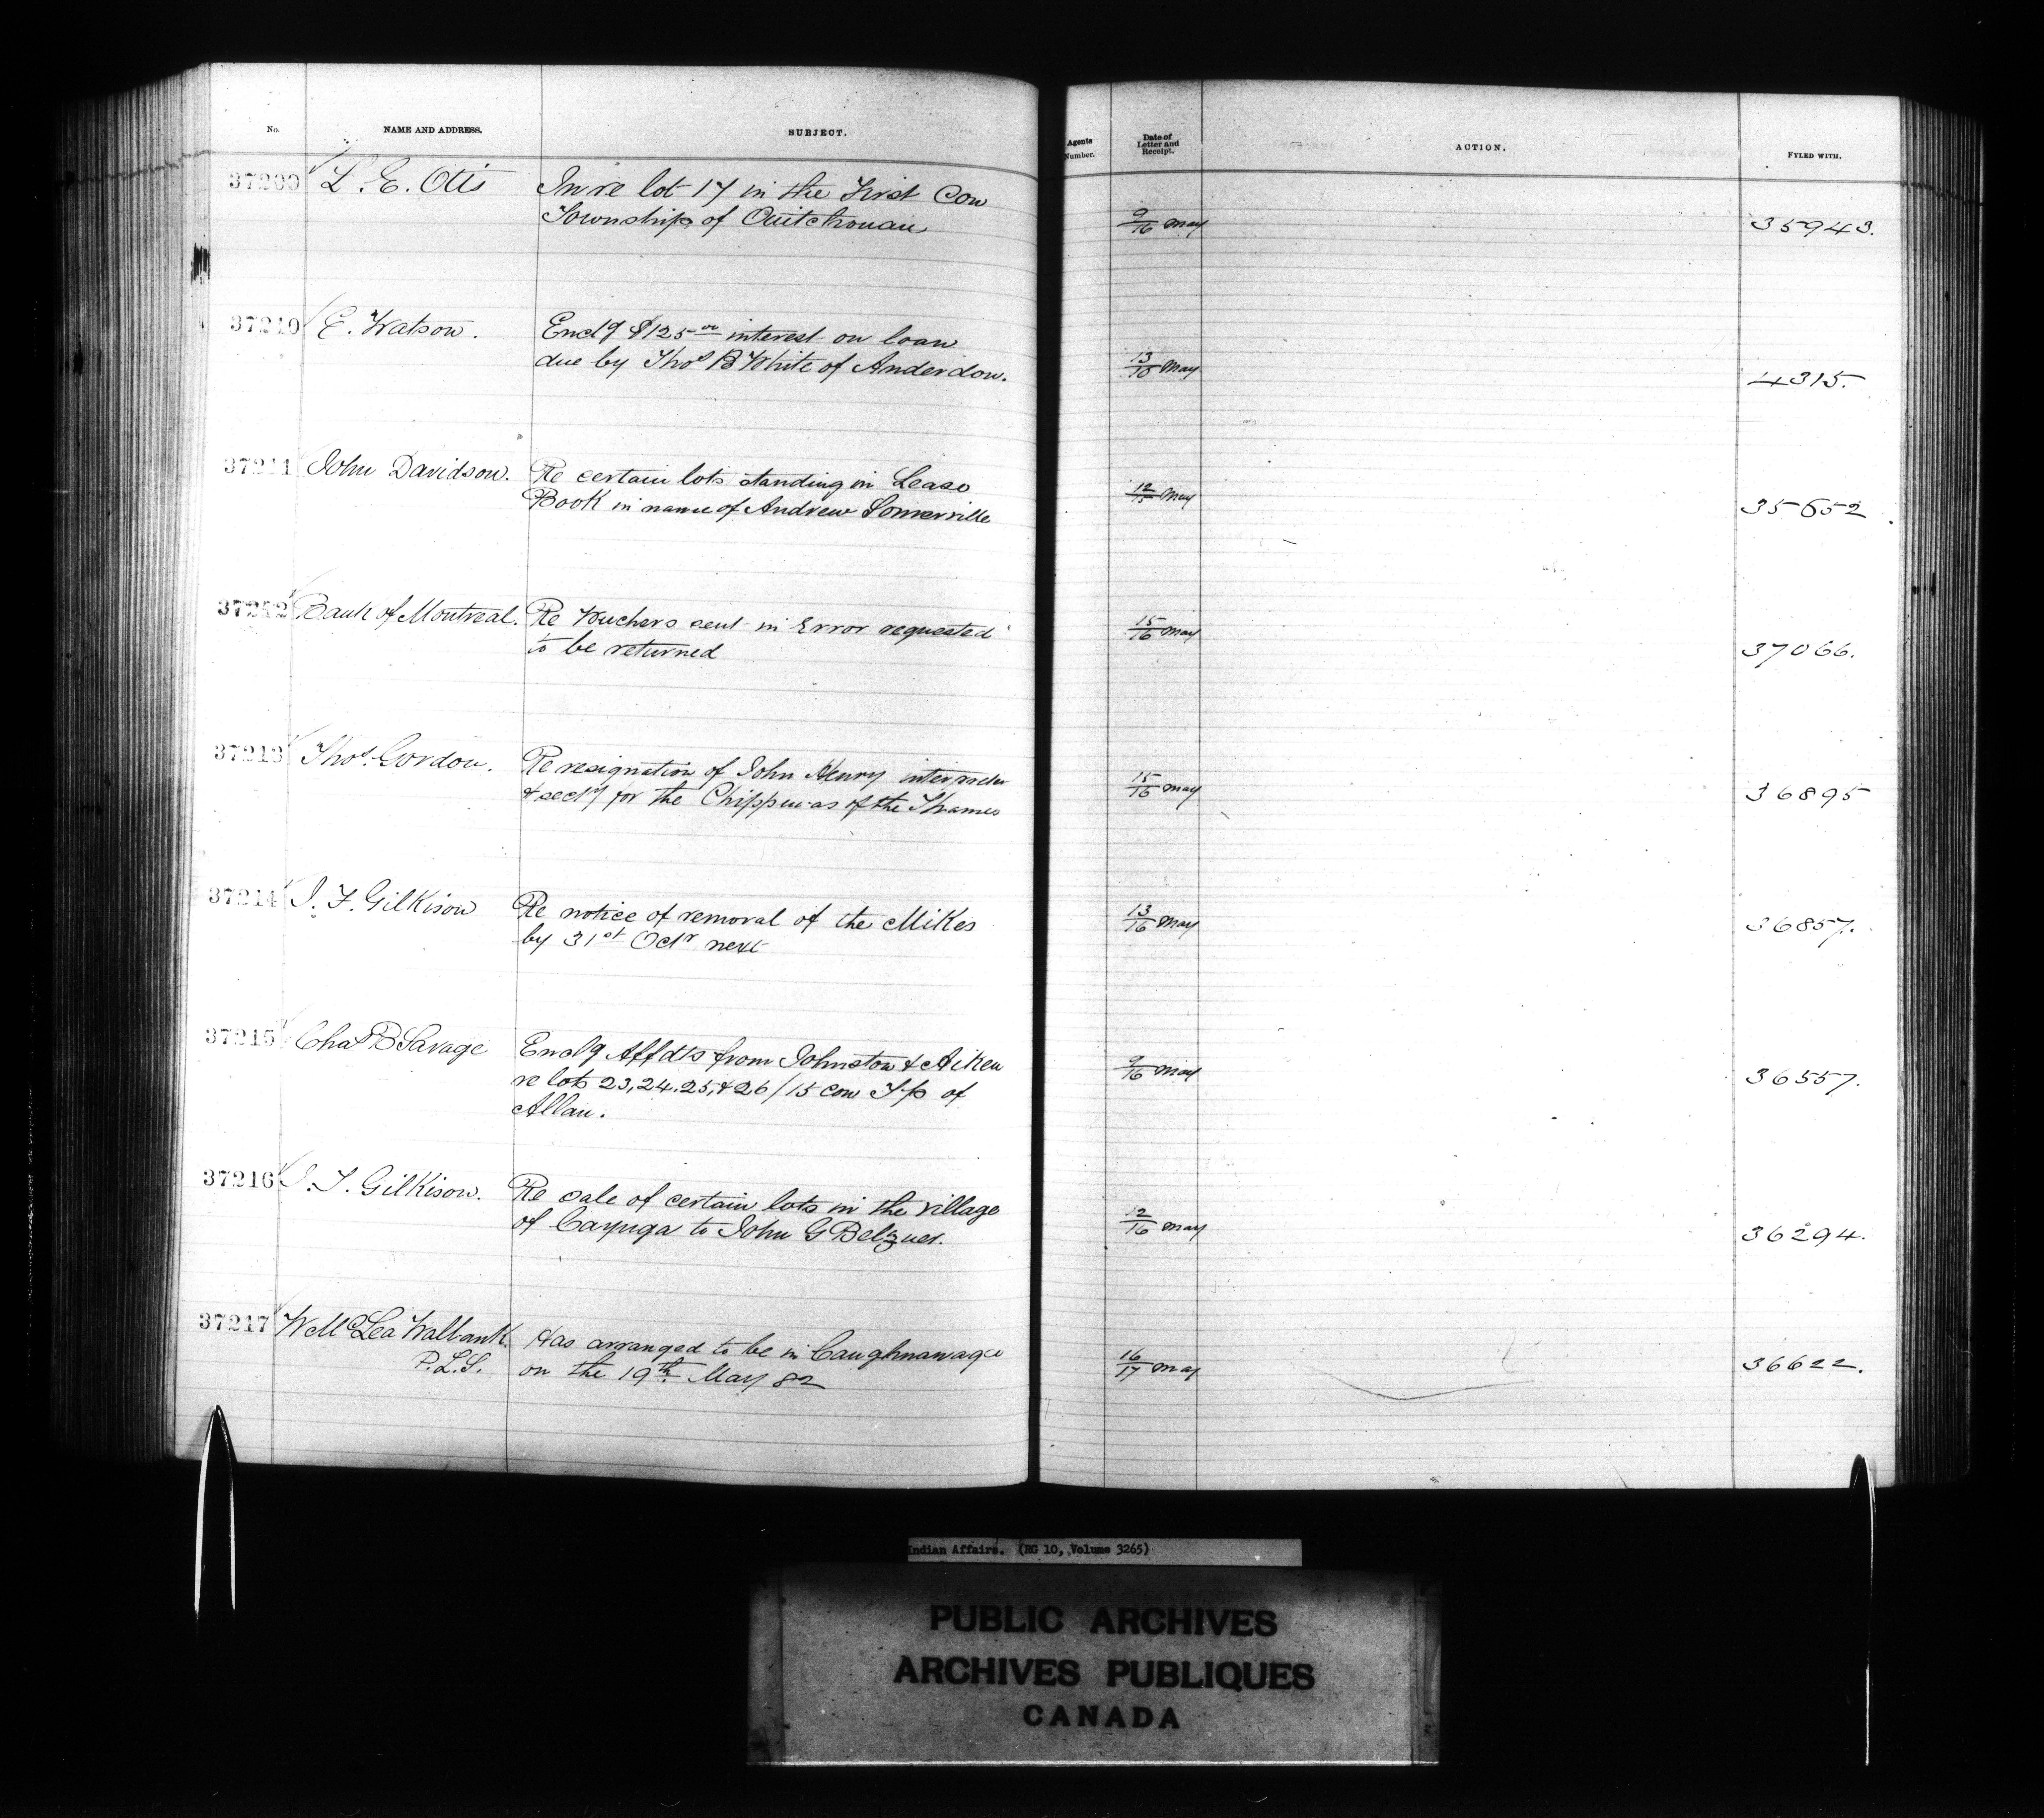 No. NAME AND ADDRESS. SUBJECT. Agents Number. Date of Letter and Receipt. ACTION. FYLED WITH.
37209 L. E. Otis In re lot 17 in the First Con
Township of Ouitchouan 9/16 May 35943.
37210 E. Watson. Encl'g $125.00 interest on loan
due by Thos B White of Anderdon. 13/15 May 4315.
37211 John Davidson. Re certain lots standing in Lease
Book in name of Andrew Somerville 12/15 May 35652
37212 Bank of Montreal. Re Vouchers sent in Error requested
to be returned 15/16 May 37066.
37213 Thos. Gordon. Re resignation of John Henry
& sect'y for the Chippewas of the Thames 15/16 May 36895
37214 J. T. Gilkison Re notice of removal of the Mikes
by 31st Octr next 13/16 May 36857.
37215 Chas B Savage Encl'g Affdts from Johnston & Aiken
re lots 23, 24, 25, & 26/15 con T'p of
Allan. 9/16 May 36557.
37216 J. T. Gilkison. Re sale of certain lots in the village
of Cayuga to John G Belzner. 12/16 May 36294.
37217 W McLea Walbank. Has arranged to be in Caughnawaga
P.L.S. on the 19th May 82 16/17 May 36622.
Indian Affairs. (RG 10, Volume 3265)
PUBLIC ARCHIVES
ARCHIVES PUBLIQUES
CANADA